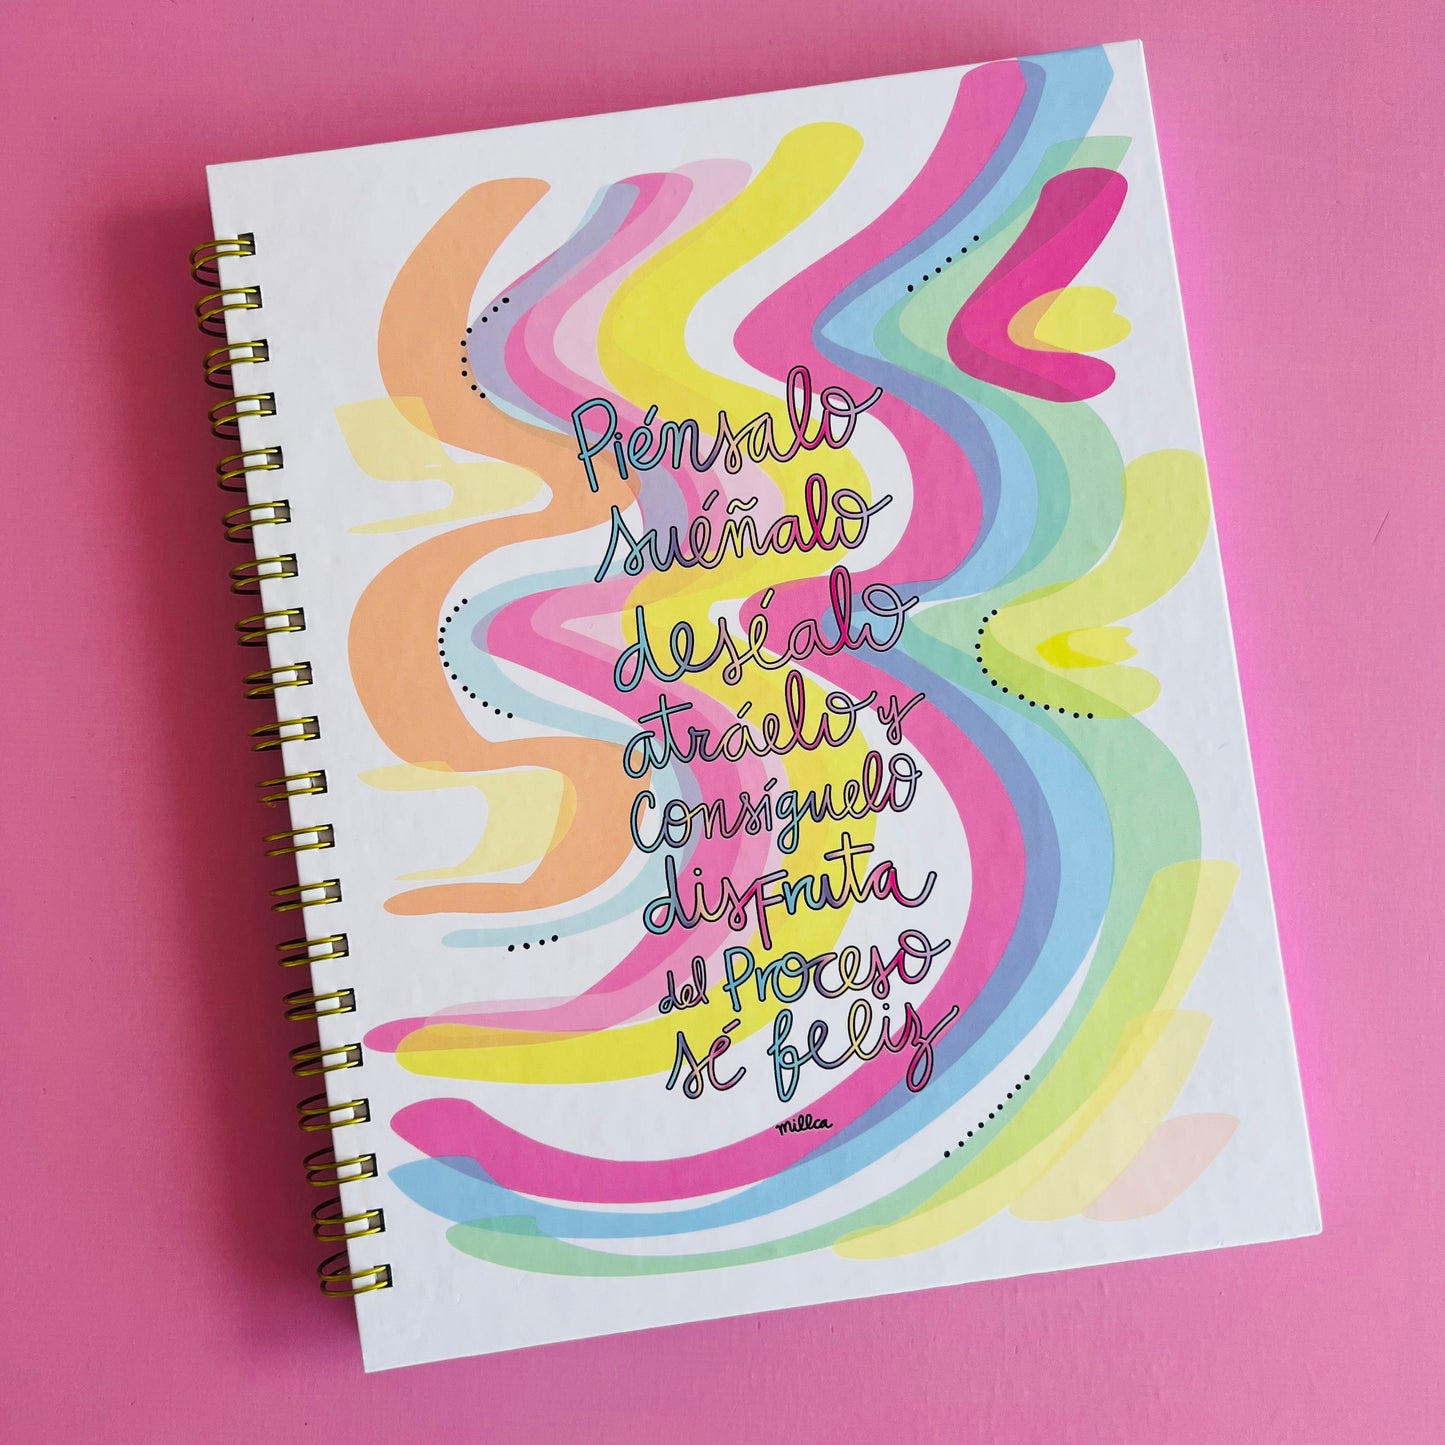 Piénsalo
suéñalo
deséalo
atráelo y
Consíguelo
disfruta
del Proceso
sé feliz
millca